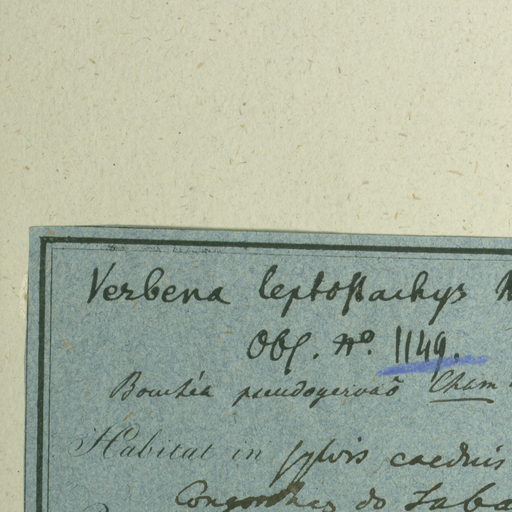 Verbena leptoſtachys
Obſ. No. 1149.
Bouchéa pseudogervaõ Cham
Habitat in ſylvis caeduis
do Saba